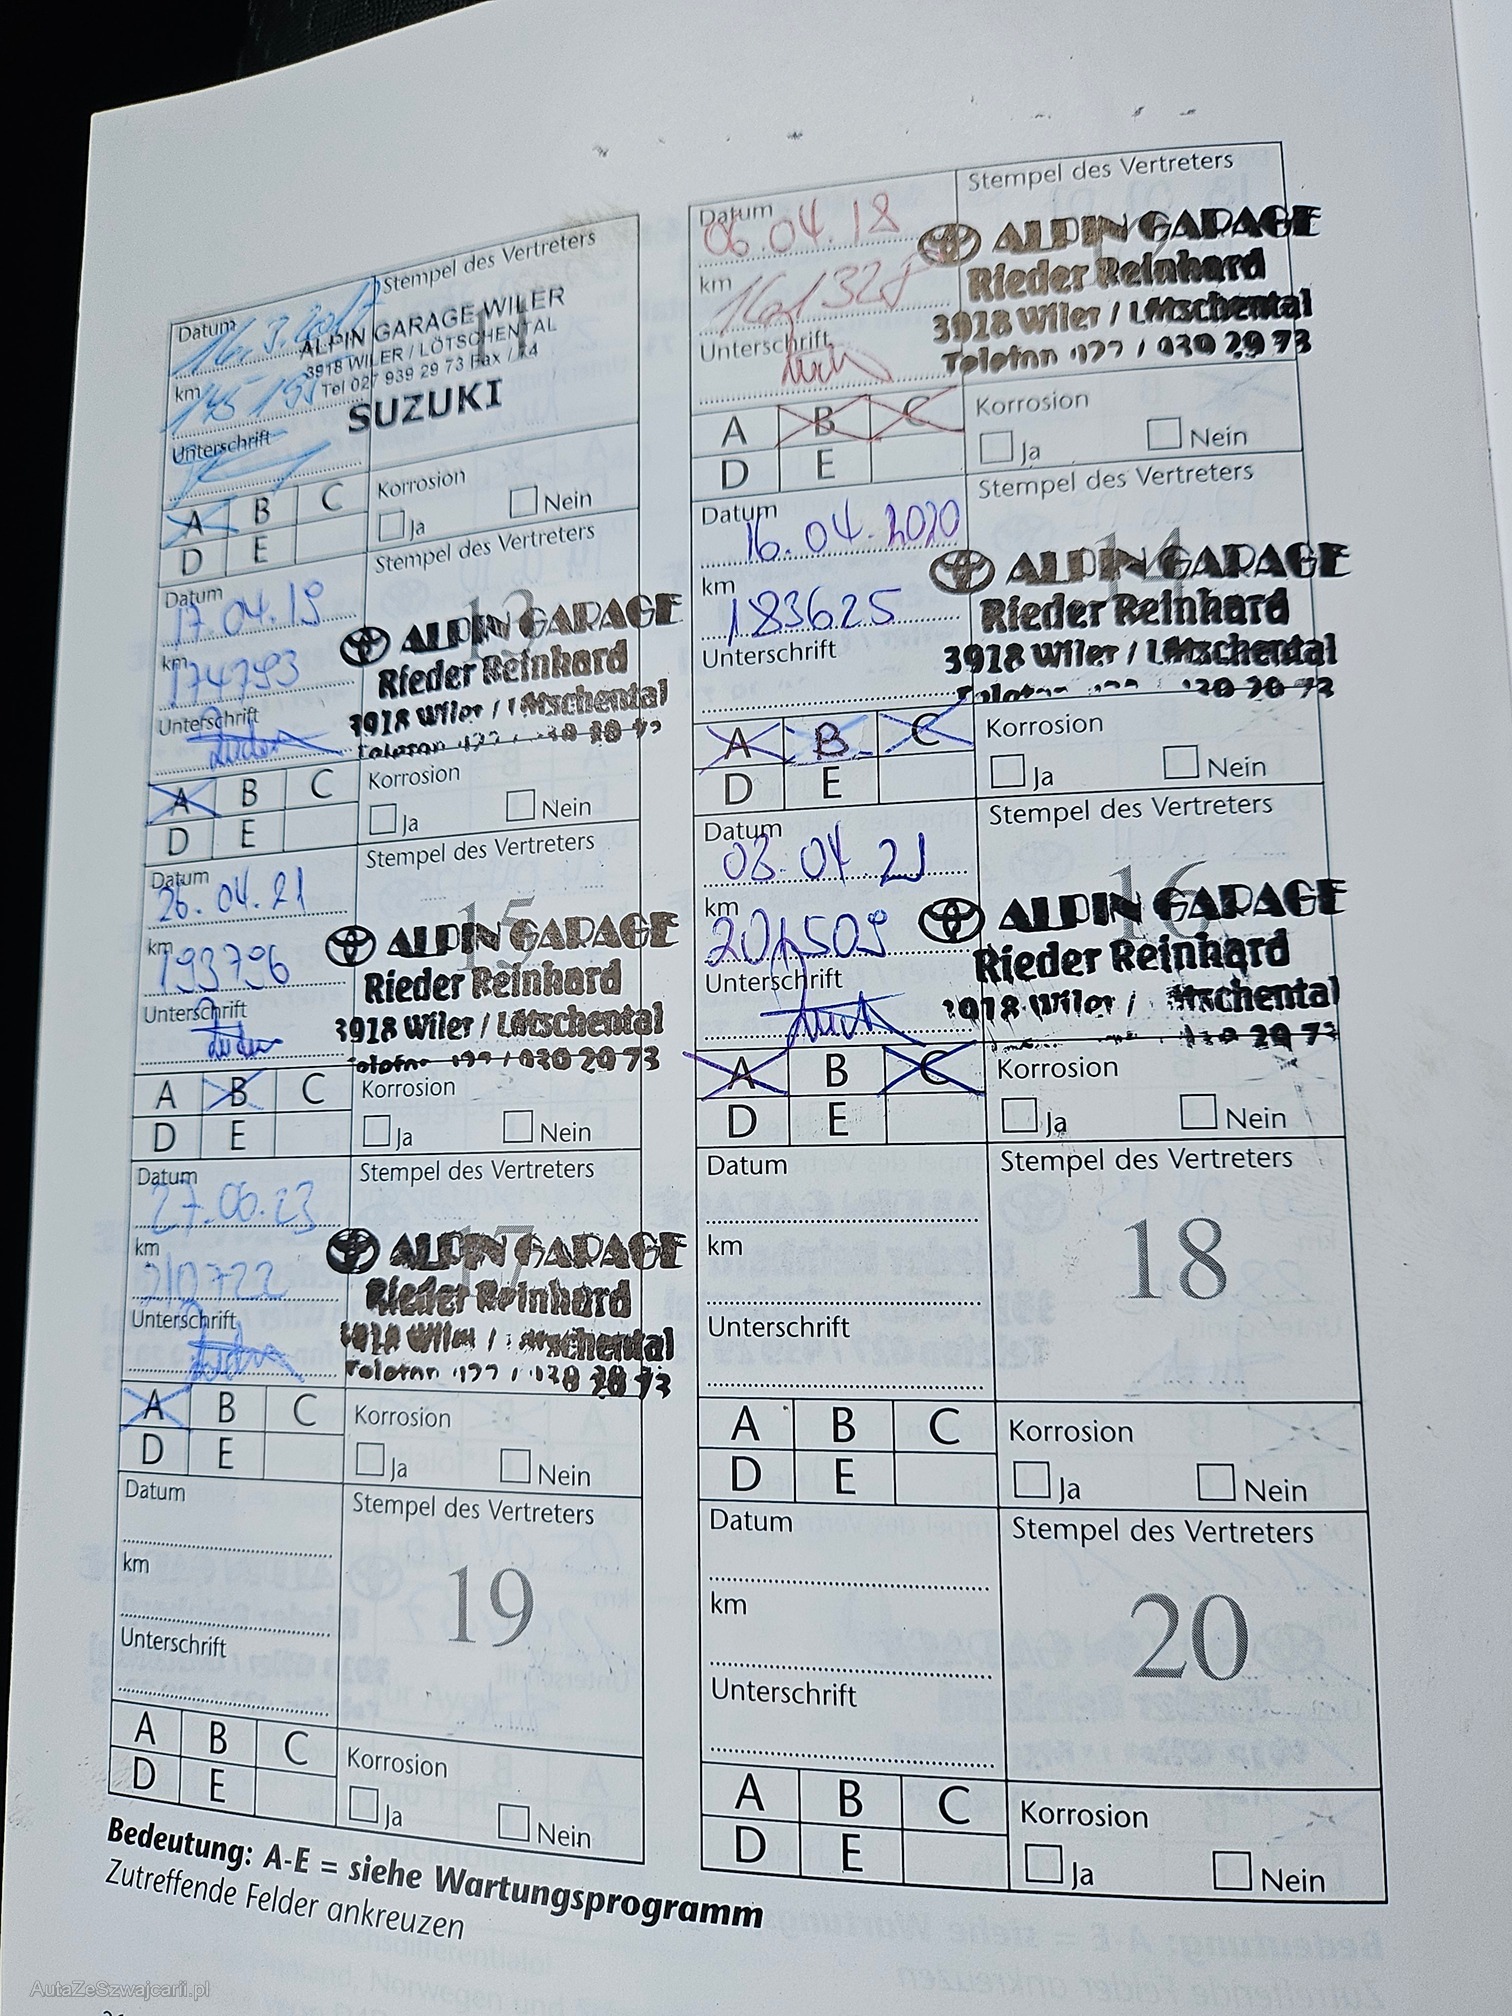 Datum
16.3.2017
Stempel des Vertreters
11
ALPIN GARAGE WILER
3918 WILER / LÖTSCHENTAL
Tel 027 939 29 73 Fax / 74
SUZUKI
km
145 195
Unterschrift
A B C
D E
Korrosion
Ja Nein
Datum
06.04.18
Stempel des Vertreters
ALPIN GARAGE
Rieder Reinhard
3918 Wiler / Lötschental
Telefon 027 / 939 29 73
km
161328
Unterschrift
A B C
D E
Korrosion
Ja Nein
Datum
17.04.19
Stempel des Vertreters
13
ALPIN GARAGE
Rieder Reinhard
3918 Wiler / Lötschental
Telefon 29 73
km
174793
Unterschrift
A B C
D E
Korrosion
Ja Nein
Datum
16.04.2020
Stempel des Vertreters
14
ALPIN GARAGE
Rieder Reinhard
3918 Wiler / Lötschental
Telefon 29 73
km
183625
Unterschrift
A B C
D E
Korrosion
Ja Nein
Datum
26.04.21
Stempel des Vertreters
15
ALPIN GARAGE
Rieder Reinhard
3918 Wiler / Lötschental
Telefon 027 / 939 29 73
km
193796
Unterschrift
A B C
D E
Korrosion
Ja Nein
Datum
03.04 21
Stempel des Vertreters
16
ALPIN GARAGE
Rieder Reinhard
3918 Wiler / Lötschental
29 73
km
201509
Unterschrift
A B C
D E
Korrosion
Ja Nein
Datum
27.06.23
Stempel des Vertreters
17
ALPIN GARAGE
Rieder Reinhard
3918 Wiler / Lötschental
Telefon 027 / 939 29 73
km
210722
Unterschrift
A B C
D E
Korrosion
Ja Nein
Datum
Stempel des Vertreters
18
km
Unterschrift
A B C
D E
Korrosion
Ja Nein
Datum
Stempel des Vertreters
19
km
Unterschrift
A B C
D E
Korrosion
Ja Nein
Datum
Stempel des Vertreters
20
km
Unterschrift
A B C
D E
Korrosion
Ja Nein
Bedeutung: A-E = siehe Wartungsprogramm
Zutreffende Felder ankreuzen
AutaZeSzwajcarii.pl